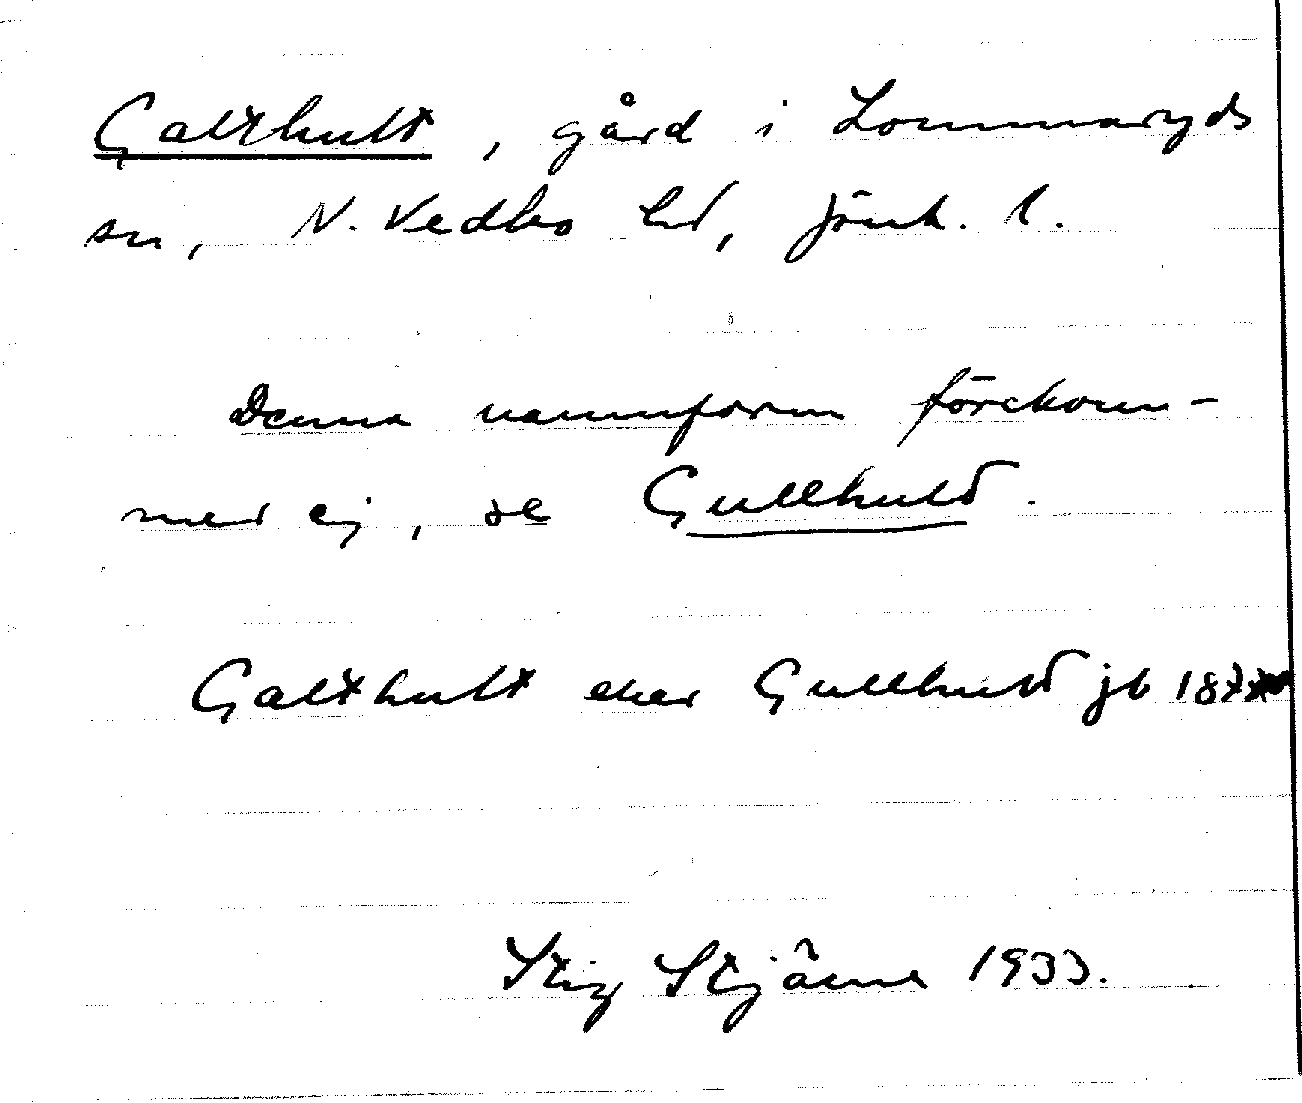 Galthult, gård i Lommaryds
sn, N. Vedbo hd, Jönk. l.
Denna namnform förekom-
mer ej, se Gullhult.
Galthult eller Gullhult jb
Stig Stjärne 1933.